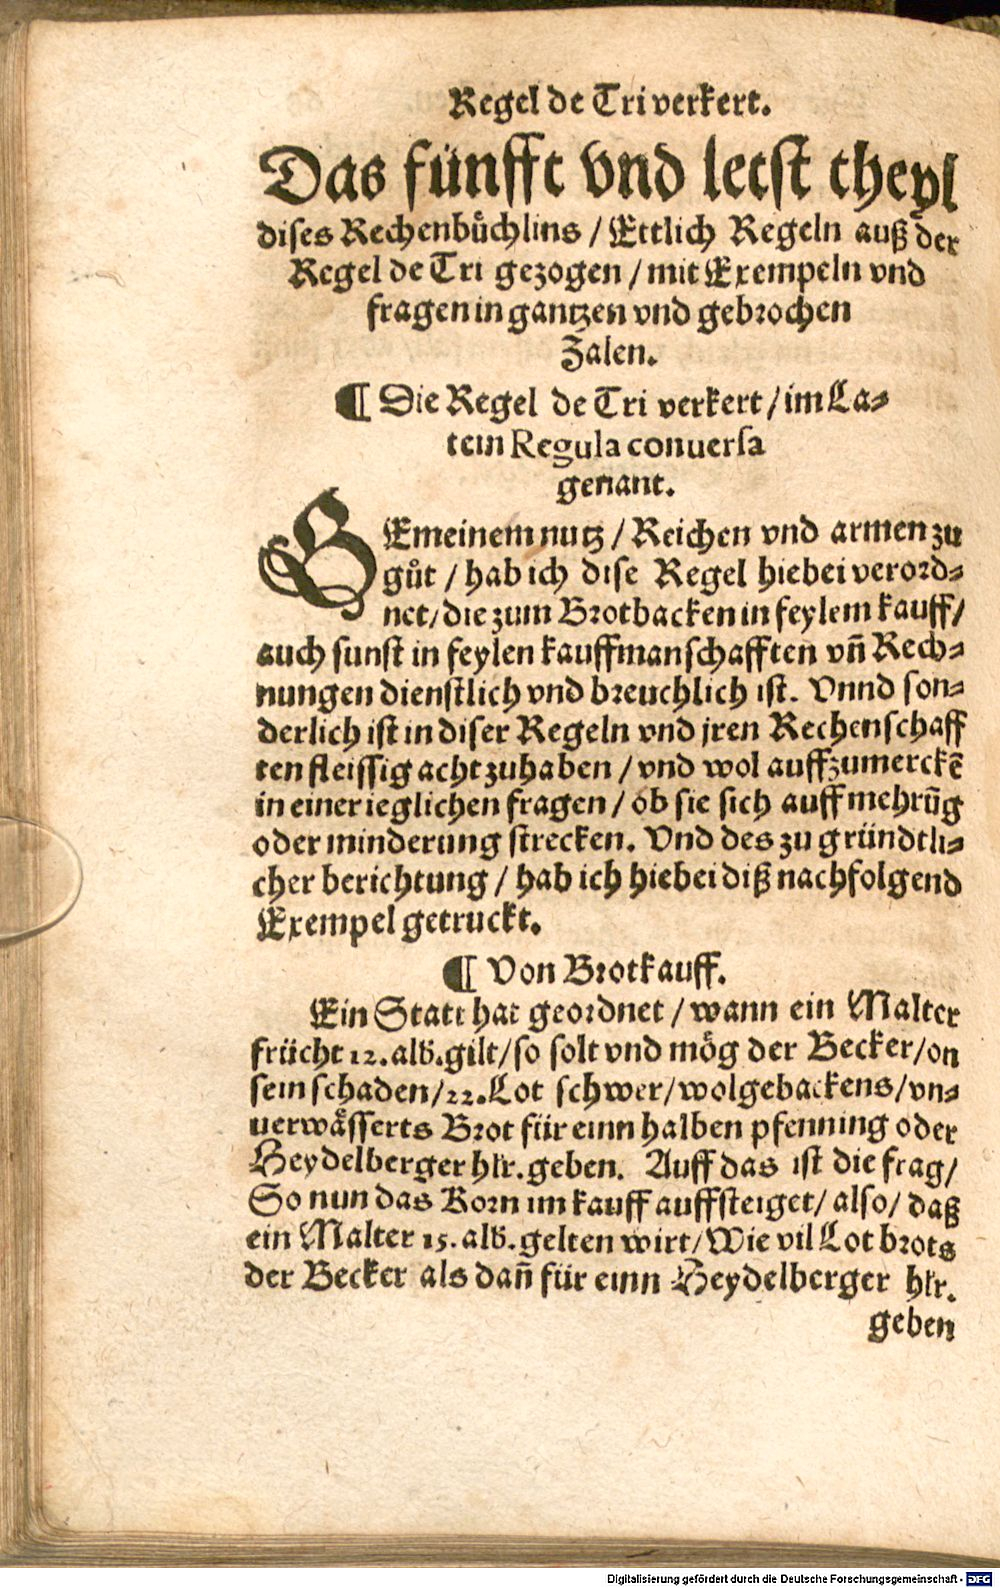 Regel de Tri verkert.
Das fünfft vnd letst theyl
dises Rechenbůchlins / Ettlich Regeln auß der
Regel de Tri gezogen / mit Exempeln vnd
fragen in gantzen vnd gebrochen
Zalen.
¶ Die Regel de Tri verkert / im La⸗
tein Regula conuersa
genant.
GEmeinem nutz / Reichen vnd armen zu
gůt / hab ich dise Regel hiebei verord⸗
net / die zum Brotbacken in feylem kauff /
auch sunst in feylen kauffmanschafften vñ Rech⸗
nungen dienstlich vnd breuchlich ist. Vnnd son⸗
derlich ist in diser Regeln vnd jren Rechenschaff
ten fleissig acht zuhaben / vnd wol auffzumerckẽ
in einer ieglichen fragen / ob sie sich auff mehrũg
oder minderung strecken. Vnd des zu gründtli⸗
cher berichtung / hab ich hiebei diß nachfolgend
Exempel getruckt.
¶ Von Brotkauff.
Ein Statt hat geordnet / wann ein Malter
frücht 12. alb. gilt / so solt vnd mög der Becker / on
sein schaden / 22. Lot schwer / wolgebackens / vn⸗
uerwåsserts Brot für einn halben pfenning oder
Heydelberger hlr. geben. Auff das ist die frag /
So nun das Korn im kauff auffsteiget / also / daß
ein Malter 15. alb. gelten wirt / Wie vil Lot brots
der Becker als dañ für einn Heydelberger hlr.
geben
Digitalisierung gefördert durch die Deutsche Forschungsgemeinschaft - DFG